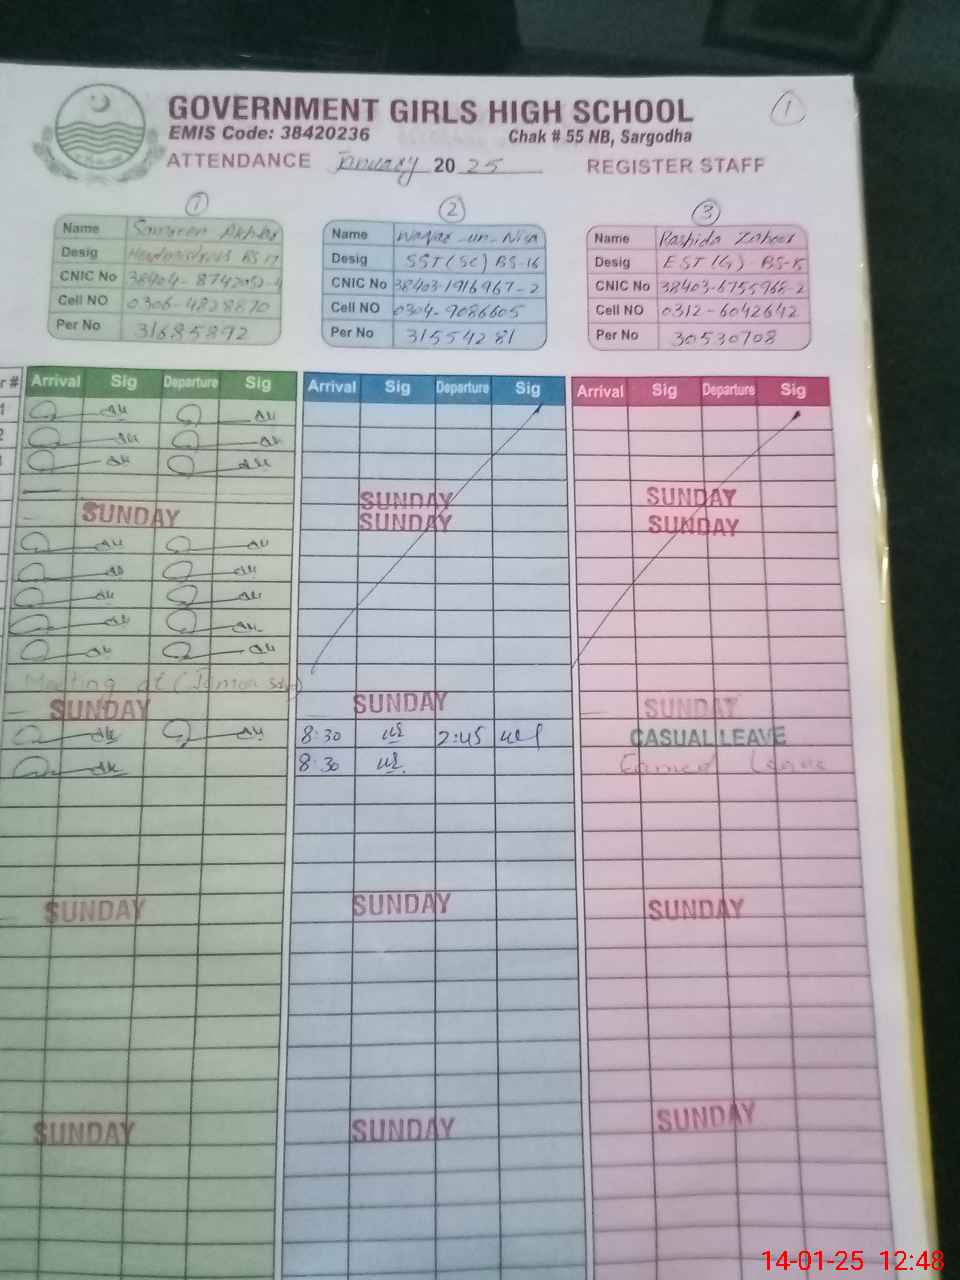 GOVERNMENT GIRLS HIGH SCHOOL
1
EMIS Code: 38420236 Chak # 55 NB, Sargodha
ATTENDANCE January 20 25 REGISTER STAFF
1 2 3
Name Samreen Akhtar
Desig Headmistress BS-17
CNIC No
Cell NO 0306-4828870
Per No 31685892
Name Waqar-un-Nisa
Desig SST (SC) BS-16
CNIC No 38403-1916967-2
Cell NO 0304-9086605
Per No 31554281
Name Rashida Zahoor
Desig EST (G) BS-15
CNIC No 38403-6755968-2
Cell NO 0312-6042642
Per No 30530708
r # Arrival Sig Departure Sig Arrival Sig Departure Sig Arrival Sig Departure Sig
1
2
SUNDAY SUNDAY
SUNDAY SUNDAY SUNDAY
Meeting at
SUNDAY SUNDAY SUNDAY
8:30 2:45 CASUAL LEAVE
8:30 Earned Leave
SUNDAY SUNDAY SUNDAY
SUNDAY SUNDAY SUNDAY
14-01-25 12:48